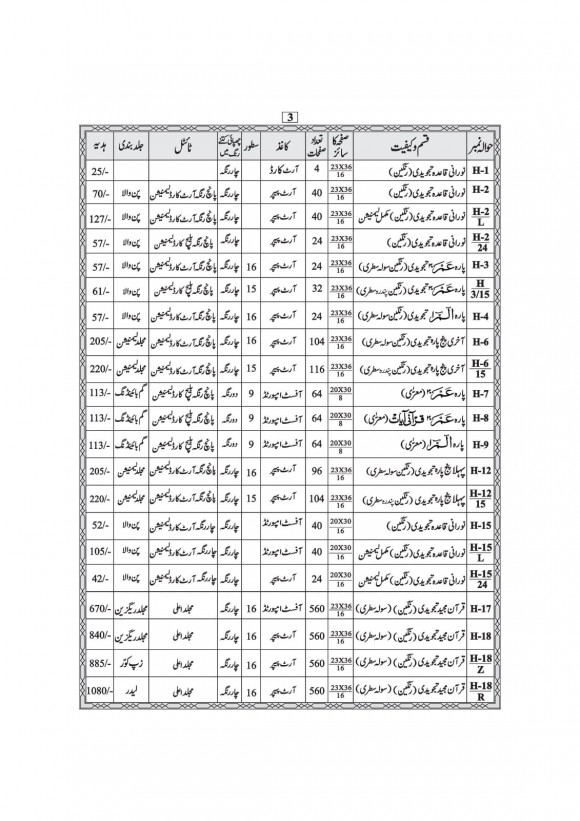 3
حوالہ نمبر قسم و کیفیت صفحہ کا سائز تعداد صفحات کاغذ سطور چھپائی کتنے رنگ میں ٹائٹل جلد بندی ہدیہ
H-1 نورانی قاعدہ تجویدی (رنگین) 23X36/16 4 آرٹ کارڈ چار رنگہ 25/-
H-2 نورانی قاعدہ تجویدی (رنگین) 23X36/16 40 آرٹ پیپر چار رنگہ پانچ رنگہ آرٹ کارڈ لیمینیشن پن والا 70/-
H-2/L نورانی قاعدہ تجویدی (رنگین) مکمل لیمینیشن 23X36/16 40 آرٹ پیپر چار رنگہ پانچ رنگہ آرٹ کارڈ لیمینیشن پن والا 127/-
H-2/24 نورانی قاعدہ تجویدی (رنگین) 23X36/16 24 آرٹ پیپر چار رنگہ پانچ رنگہ کارڈ لیمینیشن پن والا 57/-
H-3 پارہ عم تجویدی (رنگین سولہ سطری) 23X36/16 24 آرٹ پیپر 16 چار رنگہ پانچ رنگہ کارڈ لیمینیشن پن والا 57/-
H/3/15 پارہ عم تجویدی (رنگین پندرہ سطری) 23X36/16 32 آرٹ پیپر 15 چار رنگہ پانچ رنگہ کارڈ لیمینیشن پن والا 61/-
H-4 پارہ الم تجویدی (رنگین سولہ سطری) 23X36/16 24 آرٹ پیپر 16 چار رنگہ پانچ رنگہ آرٹ کارڈ لیمینیشن پن والا 57/-
H-6 آخری پنج پارہ تجویدی (رنگین سولہ سطری) 23X36/16 104 آرٹ پیپر 16 چار رنگہ پانچ رنگہ کارڈ لیمینیشن مجلد لیمینیشن 205/-
H-6/15 آخری پنج پارہ تجویدی (رنگین پندرہ سطری) 23X36/16 116 آرٹ پیپر 15 چار رنگہ پانچ رنگہ کارڈ لیمینیشن مجلد لیمینیشن 220/-
H-7 پارہ عم (معرّٰی) 20X30/8 64 آفسٹ امپورٹڈ 9 دو رنگہ پانچ رنگہ کارڈ لیمینیشن گم بائینڈنگ 113/-
H-8 پارہ عم قرآنی آیات (معرّٰی) 20X30/8 64 آفسٹ امپورٹڈ 9 دو رنگہ پانچ رنگہ کارڈ لیمینیشن گم بائینڈنگ 113/-
H-9 پارہ الم (معرّٰی) 20X30/8 64 آفسٹ امپورٹڈ 9 دو رنگہ پانچ رنگہ کارڈ لیمینیشن گم بائینڈنگ 113/-
H-12 پہلا پنج پارہ تجویدی (رنگین سولہ سطری) 23X36/16 96 آرٹ پیپر 16 چار رنگہ پانچ رنگہ آرٹ کارڈ لیمینیشن مجلد لیمینیشن 205/-
H-12/15 پہلا پنج پارہ تجویدی (رنگین پندرہ سطری) 23X36/16 104 آرٹ پیپر 15 چار رنگہ پانچ رنگہ آرٹ کارڈ لیمینیشن مجلد لیمینیشن 220/-
H-15 نورانی قاعدہ تجویدی (رنگین) 20X30/16 40 آفسٹ امپورٹڈ چار رنگہ چار رنگہ آرٹ کارڈ لیمینیشن پن والا 52/-
H-15/L نورانی قاعدہ تجویدی (رنگین) مکمل لیمینیشن 20X30/16 40 آفسٹ امپورٹڈ چار رنگہ چار رنگہ آرٹ کارڈ لیمینیشن پن والا 105/-
H-15/24 نورانی قاعدہ تجویدی (رنگین) مکمل لیمینیشن 20X30/16 24 آرٹ پیپر چار رنگہ چار رنگہ آرٹ کارڈ لیمینیشن پن والا 42/-
H-17 قرآن مجید تجویدی (رنگین) (سولہ سطری) 23X36/16 560 آفسٹ امپورٹڈ 16 چار رنگہ مجلد اعلیٰ مجلد ریگزین 670/-
H-18 قرآن مجید تجویدی (رنگین) (سولہ سطری) 23X36/16 560 آرٹ پیپر 16 چار رنگہ مجلد اعلیٰ مجلد ریگزین 840/-
H-18/Z قرآن مجید تجویدی (رنگین) (سولہ سطری) 23X36/16 560 آرٹ پیپر 16 چار رنگہ مجلد اعلیٰ زپ کور 885/-
H-18/R قرآن مجید تجویدی (رنگین) (سولہ سطری) 23X36/16 560 آرٹ پیپر 16 چار رنگہ مجلد اعلیٰ لیدر 1080/-